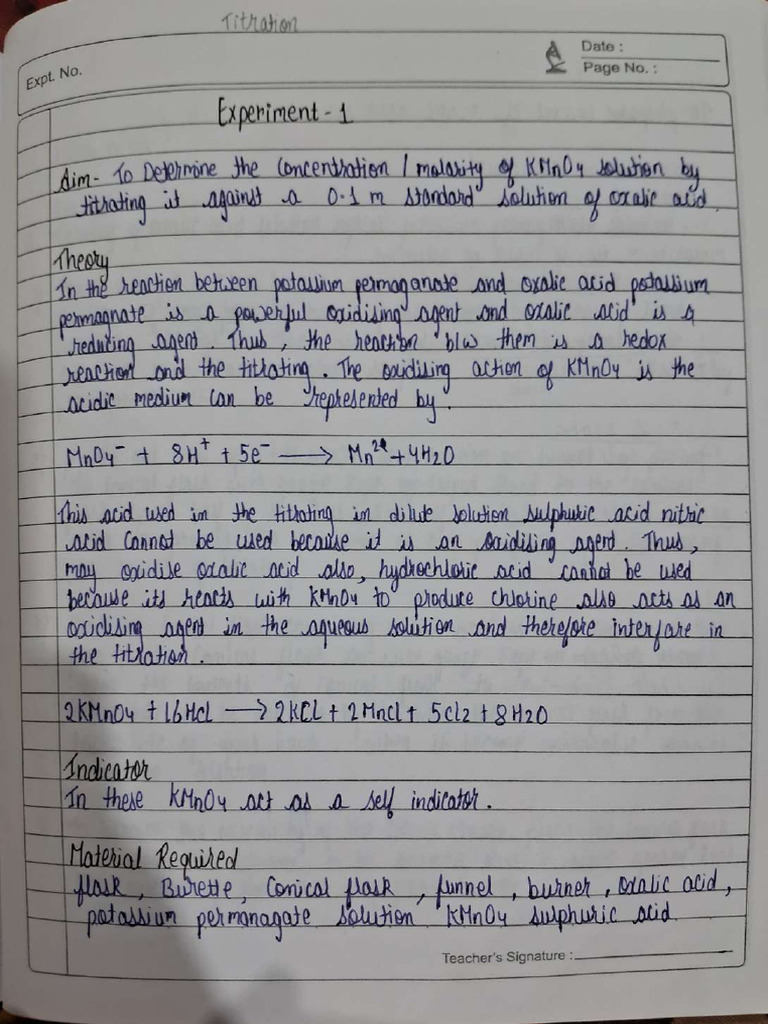 Titration
Expt. No.
Date :
Page No. :
Experiment - 1
Aim - To Determine the Concentration / molarity of KMnO4 solution by
titrating it against a 0.1 m standard solution of oxalic acid.
Theory
In the reaction between potassium permaganate and oxalic acid potassium
permagnate is a powerful oxidising agent and oxalic acid is a
reducing agent. Thus, the reaction b/w them is a redox
reaction and the titrating. The oxidising action of KMnO4 is the
acidic medium can be represented by.
MnO4⁻ + 8H⁺ + 5e⁻ ⟶ Mn²⁺ + 4H2O
This acid used in the titrating in dilute solution sulphuric acid nitric
acid cannot be used because it is an oxidising agent. Thus,
may oxidise oxalic acid also, hydrochloric acid cannot be used
because its reacts with KMnO4 to produce chlorine also acts as an
oxidising agent in the aqueous solution and therefore interfare in
the titration.
2KMnO4 + 16HCl ⟶ 2KCL + 2MnCl + 5Cl2 + 8H2O
Indicator
In these KMnO4 act as a self indicator.
Material Required
flask, Burette, Conical flask, funnel, burner, oxalic acid,
potassium permanagate solution KMnO4 sulphuric acid.
Teacher's Signature :